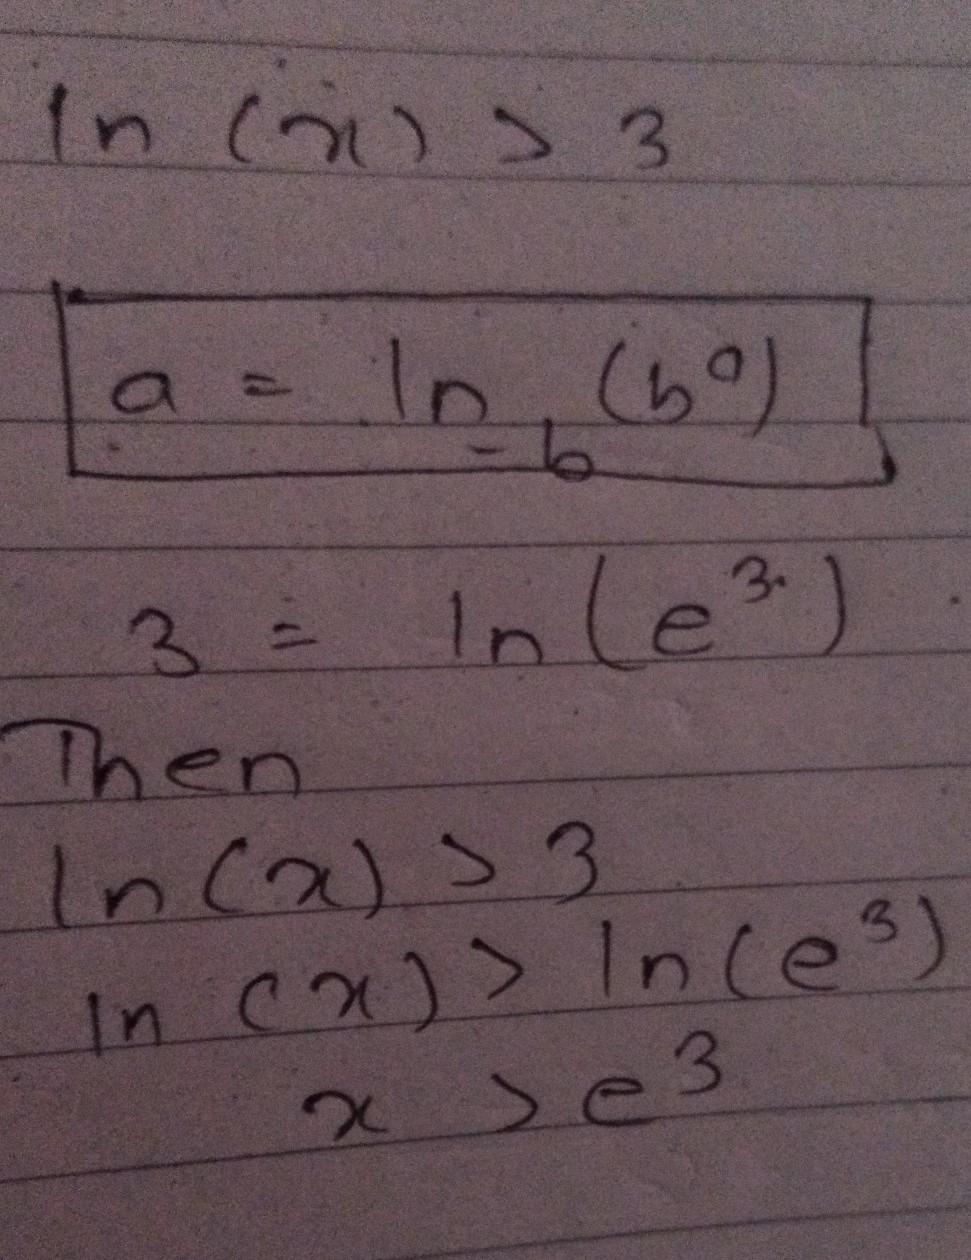 ln (x) > 3
a = ln_b (b^a)
3 = ln(e^3)
Then
ln(x) > 3
ln (x) > ln(e^3)
x > e^3